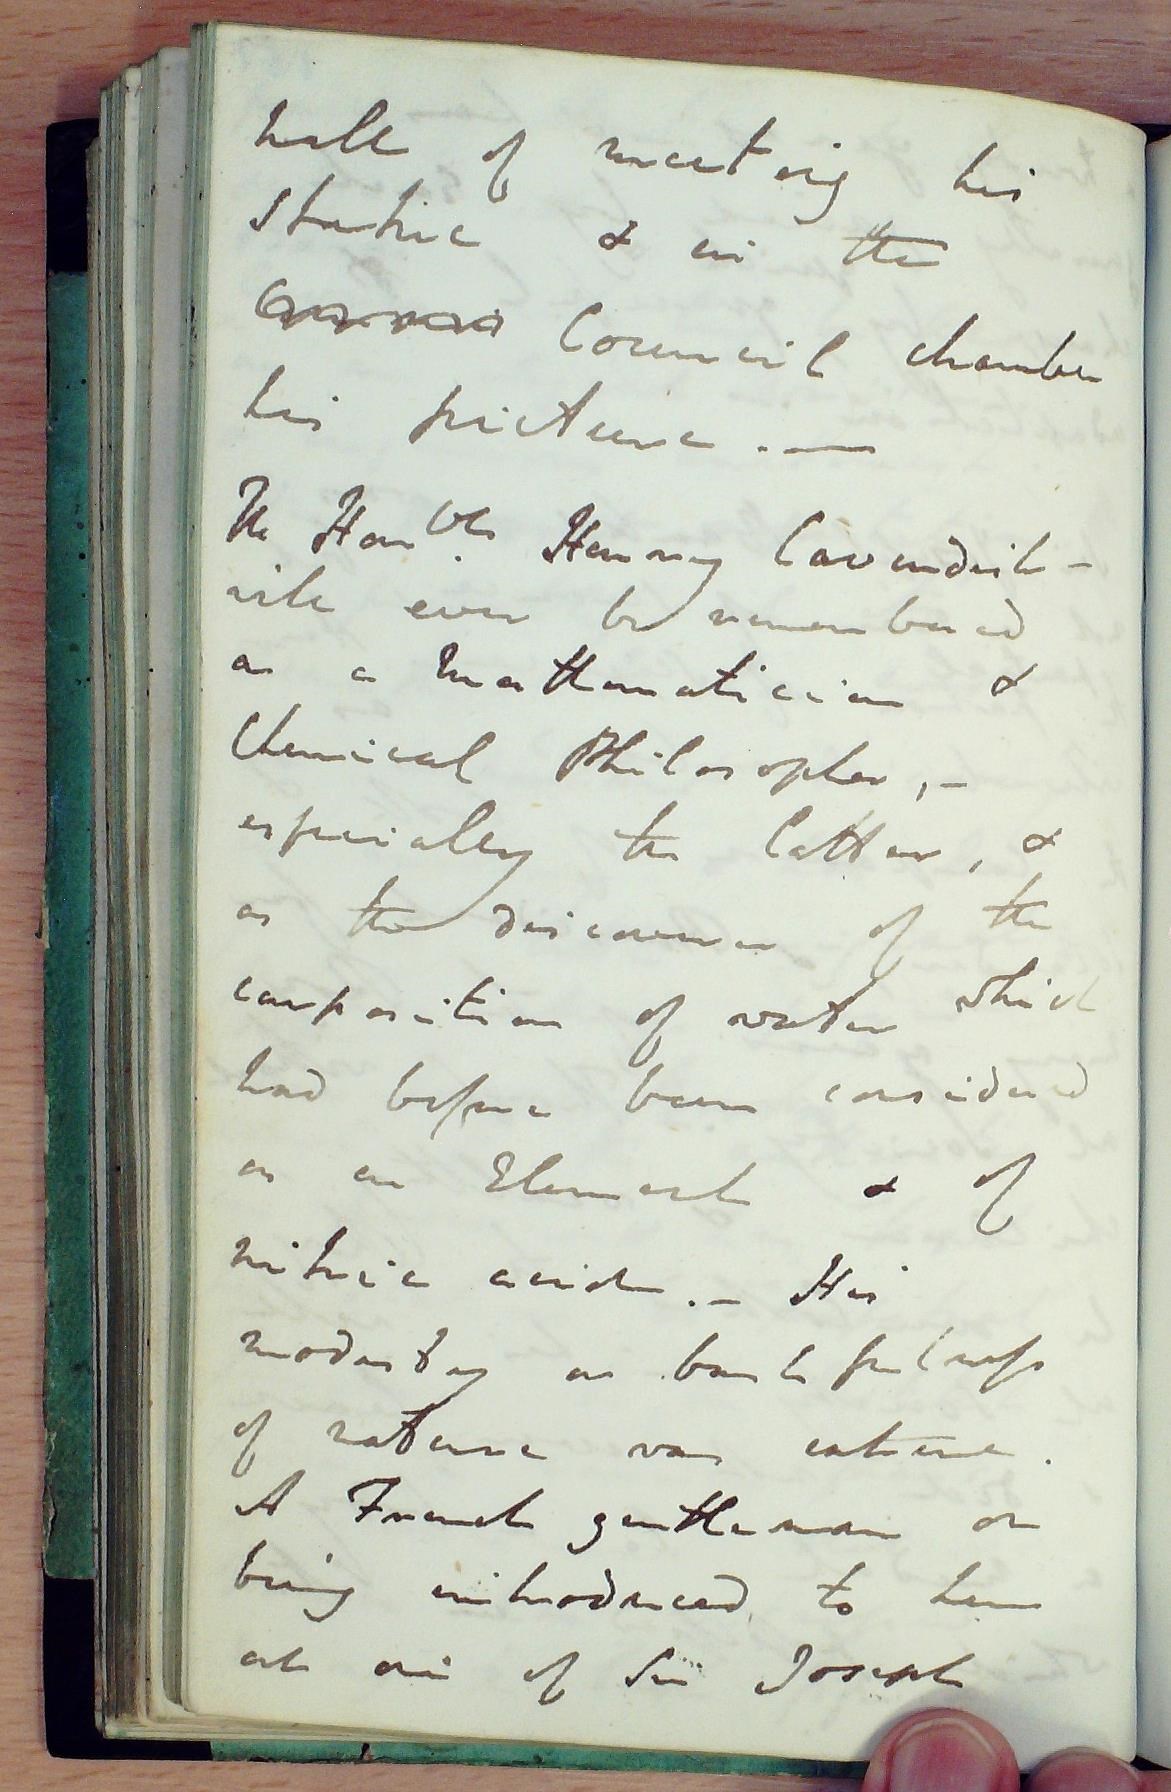 hall of meeting his
Statue & in the
Council chamber
his picture. —
The Hon.ble Henry Cavendish -
will ever be remembered
as a Mathematician &
Chemical Philosopher, -
especially the latter, &
as the discoverer of the
composition of water which
had before been considered
as an Element & of
nitric acid. - His
modesty or bashfulness
of nature was extreme.
A French gentleman on
being introduced to him
at one of Sir Joseph